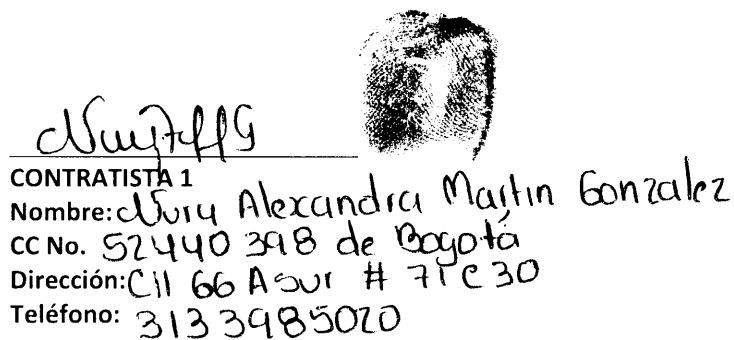 CONTRATISTA 1
Nombre: Nury Alexandra Martin Gonzalez
CC No. 52440398 de Bogotá
Dirección: Cll 66 A sur # 71 C 30
Teléfono: 3133985020